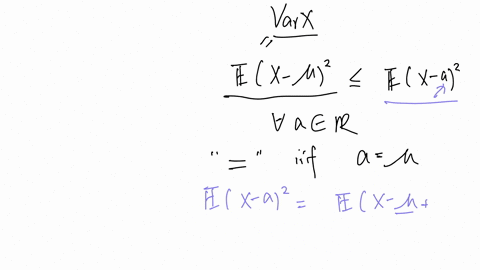 Var X
"
𝔼(X-μ)² ≤ 𝔼(X-a)²
∀ a ∈ ℝ
"=" iif a = μ
𝔼(X-a)² = 𝔼(X-μ+